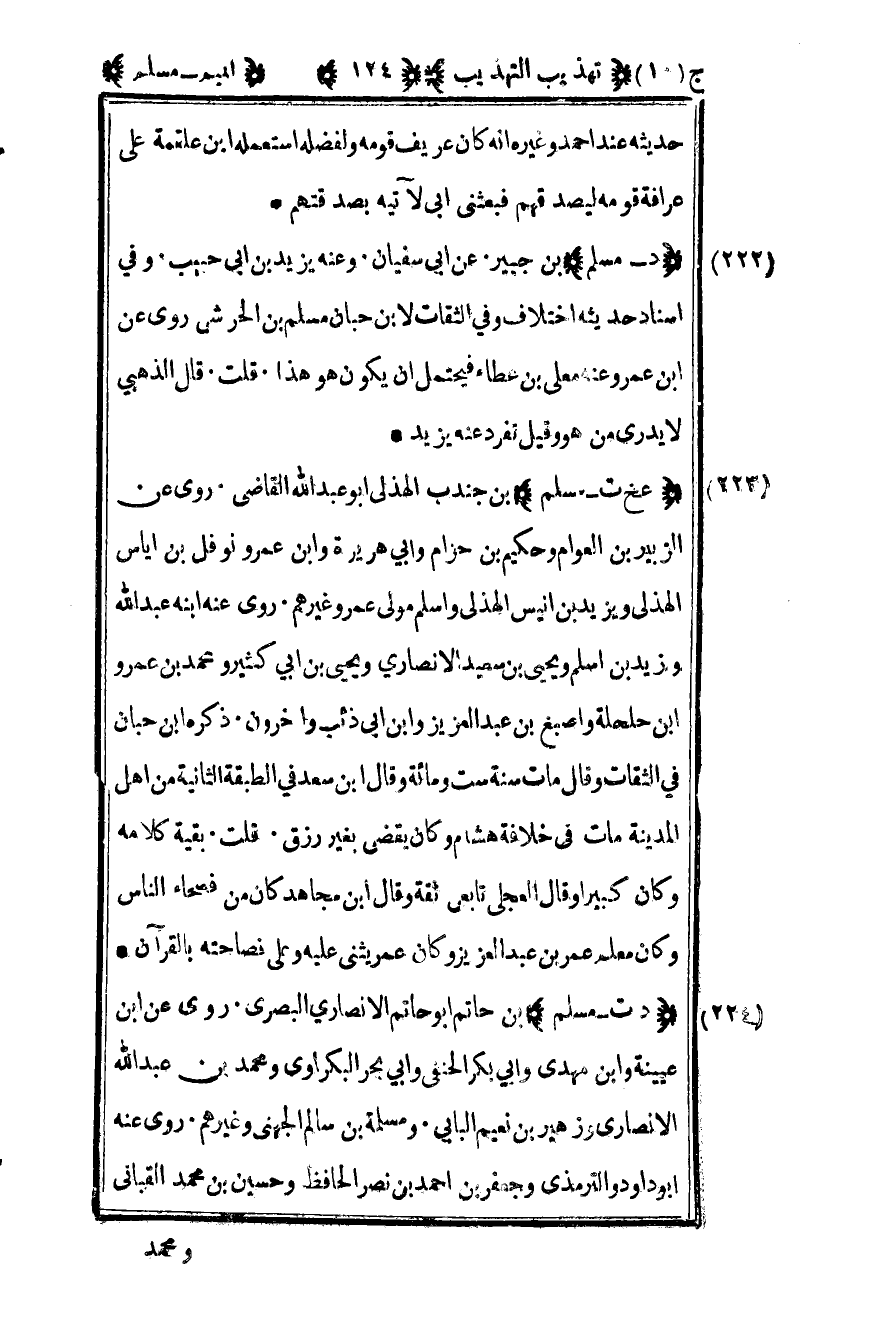 ج (١٠) ﴿ تهذيب التهذيب ﴾ ﴿ ١٢٤ ﴾ ﴿ الميم ـ مسلم ﴾
حديثه عند احمد وغيره انه كان عريف قومه ولفضله استعمله ابن علقمة على
عرافة قومه ليصدقهم فبعثنى ابى لآتيه بصدقتهم •
(٢٢٢) ﴿ د ـ مسلم ﴾ بن جبير · عن ابى سفيان · وعنه يزيد بن ابى حبيب · وفي
اسناد حديثه اختلاف وفي الثقات لابن حبان مسلم بن الحرشى روى عن
ابن عمرو عنه معلى بن عطاء فيحتمل ان يكون هو هذا · قلت · قال الذهبي
لا يدرى من هو وقيل تفرد عنه يزيد •
(٢٢٣) ﴿ عخ ت ـ مسلم ﴾ بن جندب الهذلى ابو عبدالله القاضى · روى عن
الزبير بن العوام وحكيم بن حزام وابي هريرة وابن عمرو نوفل بن اياس
الهذلى ويزيد بن انيس الهذلى واسلم مولى عمر وغيرهم · روى عنه ابنه عبدالله
وزيد بن اسلم ويحيى بن سعيد الانصاري ويحيى بن ابي كثير و محمد بن عمرو
ابن حلحلة واصبغ بن عبدالعزيز وابن ابى ذئب واخرون · ذكره ابن حبان
في الثقات وقال مات سنة ست ومائة وقال ابن سعد في الطبقة الثانية من اهل
المدينة مات فى خلافة هشام وكان يقضى بغير رزق · قلت · بقية كلامه
وكان كبيرا وقال العجلى تابعى ثقة وقال ابن مجاهد كان من فصحاء الناس
وكان معلم عمر بن عبدالعزيز وكان عمر يثنى عليه وعلى فصاحته بالقرآن •
(٢٢٤) ﴿ د ت ـ مسلم ﴾ بن حاتم ابو حاتم الانصاري البصرى · روى عن ابن
عيينة وابن مهدى وابي بكر الحنفى وابي بحر البكراوى و محمد بن عبدالله
الانصارى وزهير بن نعيم البابي · ومسلمة بن سالم الجهنى وغيرهم · روى عنه
ابو داود والترمذى وجعفر بن احمد بن نصر الحافظ وحسين بن محمد القبانى
و محمد